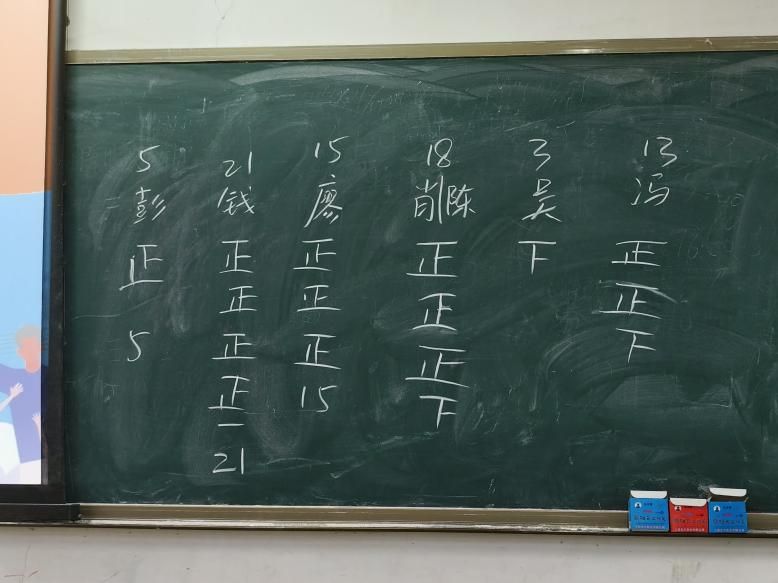 5 21 15 18 3 13
彭 钱 廖 肖陈 吴 冯
正 正 正 正 下 正
正 正 正 正
5 正 正 正 下
正 15 下
一
21